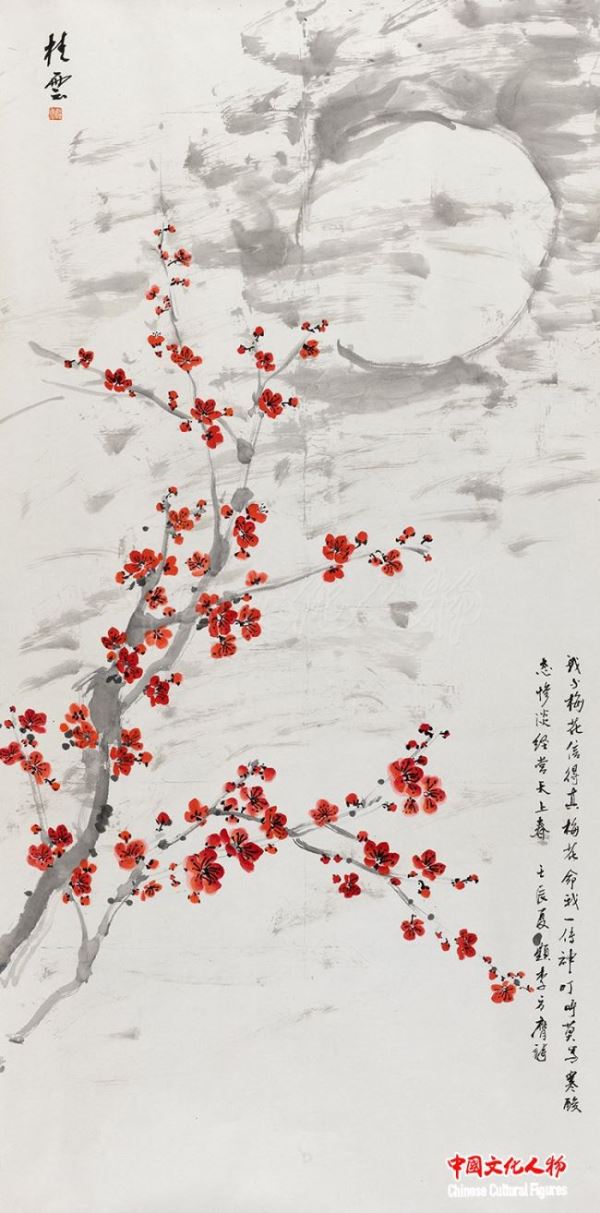 桂雲
我与梅花信得真梅花命我一传神叮咛莫写寒酸
态惨淡经营天上春 壬辰夏題李方膺詩
中國文化人物
Chinese Cultural Figures